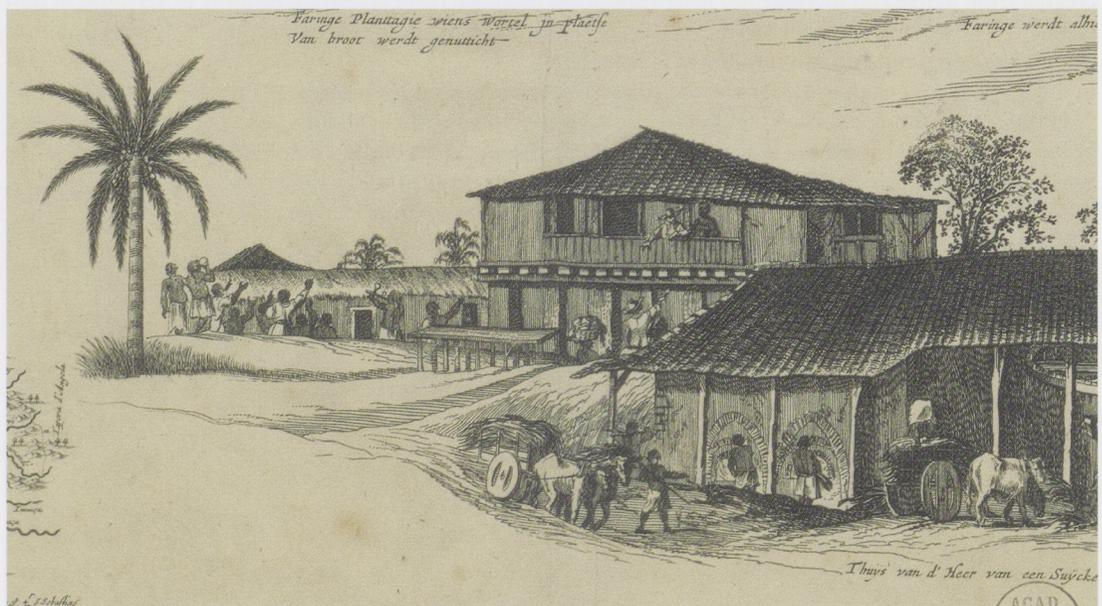 Faringe Planttagie wiens wortel jn plaetse
Van broot werdt genutticht
Faringe werdt alhi
Thuys van d' Heer van een Suycke
ACAD